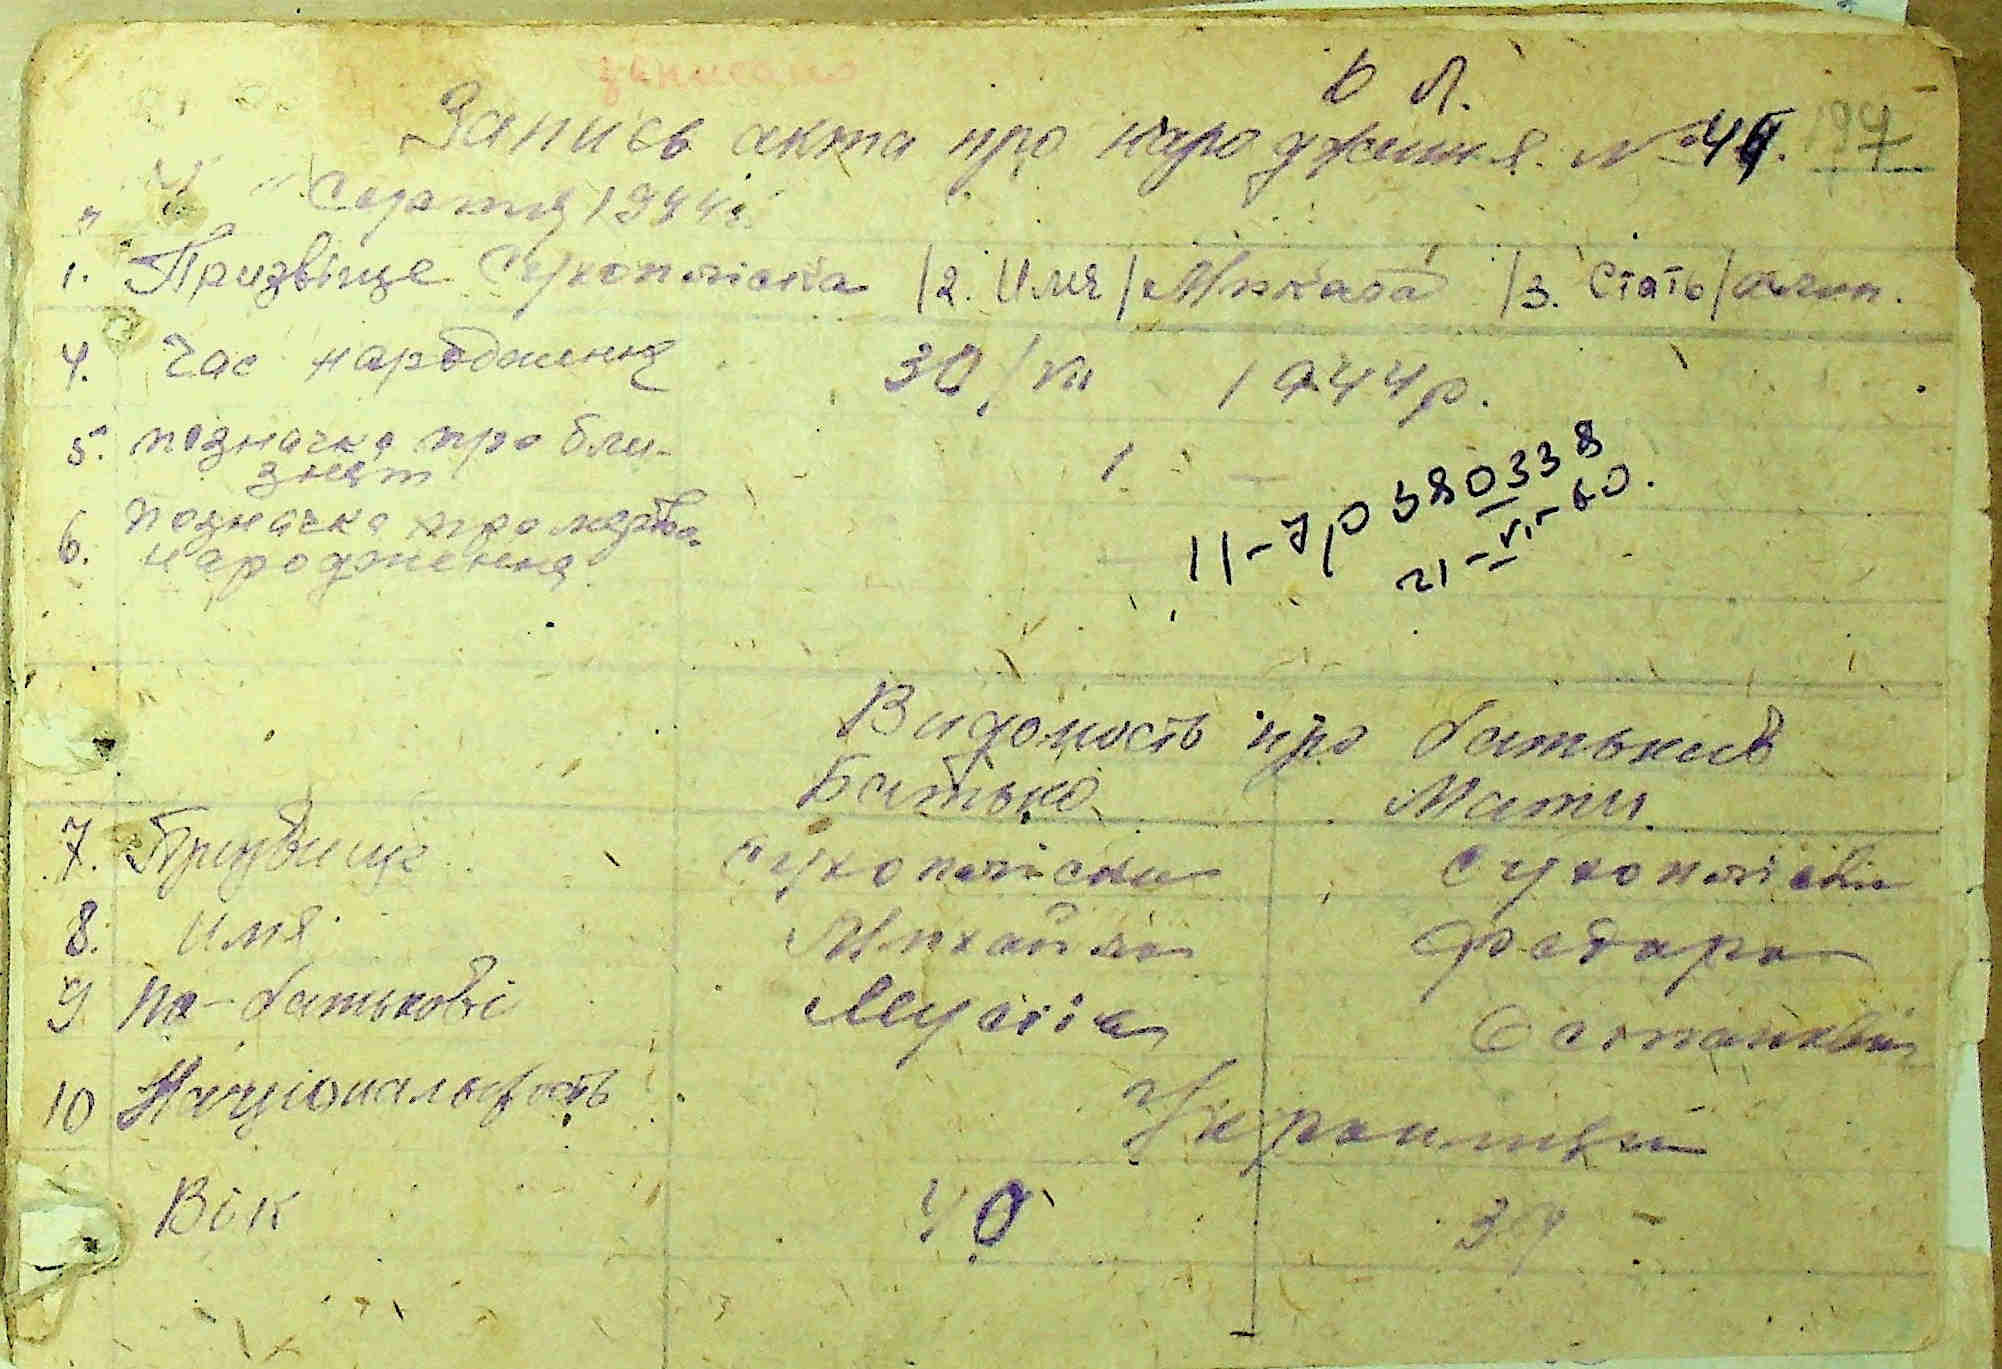 записано
в А.
Запись акта про народження. №
" Серпня 1944г.
1. Призвіще Сухоплєска |2. Имя| Микола |3. Стать|
4. Час народженя 30/VII 1944р.
5. позначка про бли-
знят 1 —
6. позначка про мертво
народження —
11-70380338
21-VI-60.
Видомость про батькив
Батько Мати
7. Призвище
8. Имя Михайло Федора
9 по-батькові Мусіів Остапівна
10 Національность Українці
Вік 40